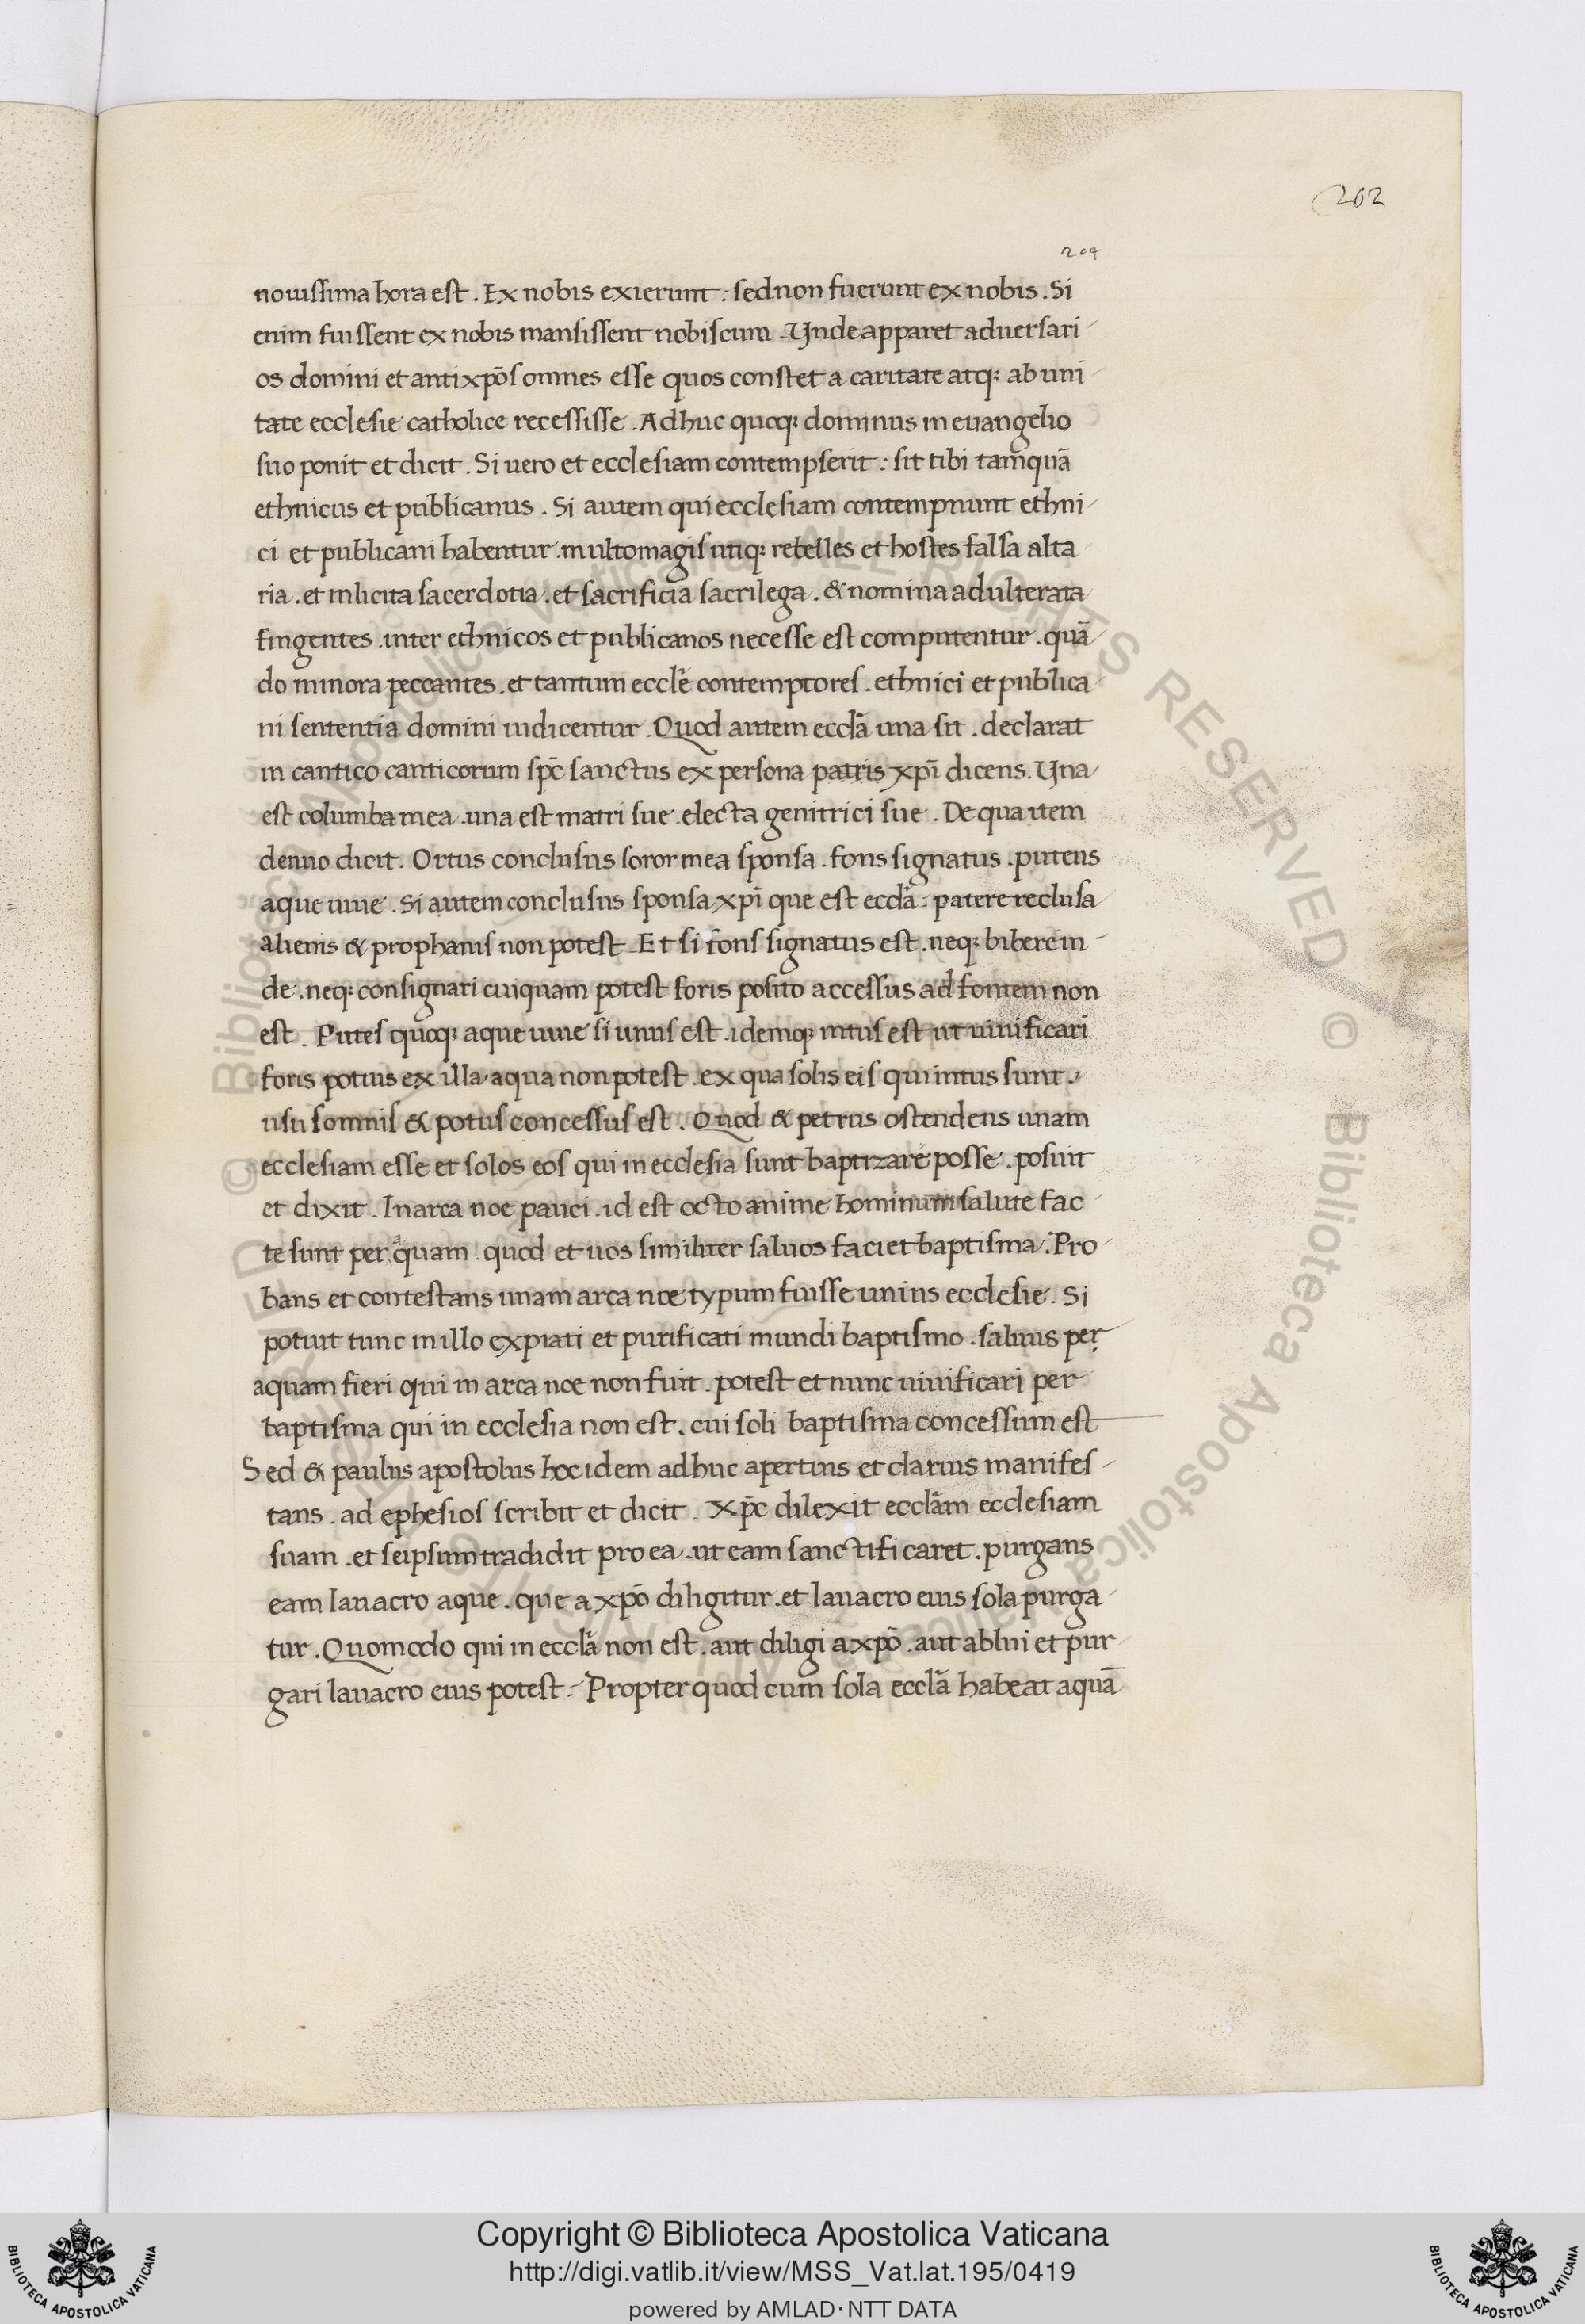 202
209
nouissima hora est . Ex nobis exierunt : sed non fuerunt ex nobis . Si
enim fuissent ex nobis mansissent nobiscum . Unde apparet aduersari
os domini et antixp̄os omnes esse quos constet a caritate atq; ab uni
tate ecclesie catholice recessisse . Adhuc quoq; dominus in euangelio
suo ponit et dicit . Si uero et ecclesiam contempserit : sit tibi tamquā
ethnicus et publicanus . Si autem qui ecclesiam contempnunt ethni
ci et publicani habentur . multomagis utiq; rebelles et hostes falsa alta
ria . et inlicita sacerdotia . et sacrificia sacrilega . & nomina adulterata
fingentes . inter ethnicos et publicanos necesse est computentur . quā
do minora peccantes . et tantum eccl̄e contemptores . ethnici et publica
ni sententia domini iudicentur . Quod autem eccl̄a una sit . declarat
in cantico canticorum sp̄c sanctus ex persona patris xp̄i dicens . Una
est columba mea . una est matri sue . electa genitrici sue . De qua item
denuo dicit . Ortus conclusus soror mea sponsa . fons signatus . puteus
aque uiue . Si autem conclusus sponsa xp̄i que est eccl̄a : patere reclusa
alienis & prophanis non potest . Et si fons signatus est . neq; bibere in
de . neq; consignari cuiquam potest foris posito accessus ad fontem non
est . Putes quoq; aque uiue si unus est . idemq; intus est ut uiuificari
foris potius ex illa aqua non potest . ex qua solis eis qui intus sunt .
usu somnis & potus concessus est . Quod & petrus ostendens unam
ecclesiam esse et solos eos qui in ecclesia sunt baptizare posse . posuit
et dixit . In arca noe pauci . id est octo anime hominum salute fac
te sunt per aquam . quod et uos similiter saluos faciet baptisma . Pro
bans et contestans unam arca noe typum fuisse unius ecclesie . Si
potuit tunc in illo expiati et purificati mundi baptismo . saluus per
aquam fieri qui in arca noe non fuit . potest et nunc uiuificari per
baptisma qui in ecclesia non est . cui soli baptisma concessum est
Sed & paulus apostolus hoc idem adhuc apertius et clarius manifes
tans . ad ephesios scribit et dicit . Xp̄c dilexit eccl̄am ecclesiam
suam . et seipsum tradidit pro ea . ut eam sanctificaret . purgans
eam lauacro aque . que a xp̄o diligitur . et lauacro eius sola purga
tur . Quomodo qui in eccl̄a non est . aut diligi a xp̄o . aut ablui et pur
gari lauacro eius potest . Propter quod cum sola eccl̄a habeat aquā
© Biblioteca Apostolica Vaticana ALL RIGHTS RESERVED
© Biblioteca Apostolica
BIBLIOTECA APOSTOLICA VATICANA
Copyright © Biblioteca Apostolica Vaticana
http://digi.vatlib.it/view/MSS_Vat.lat.195/0419
powered by AMLAD·NTT DATA
BIBLIOTECA APOSTOLICA VATICANA